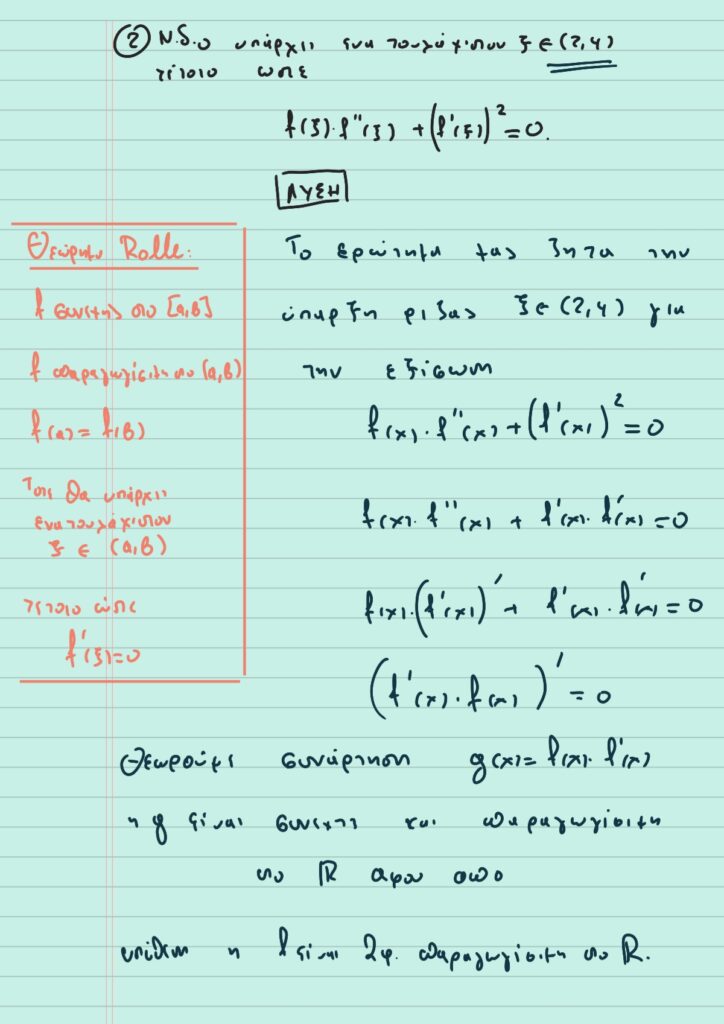 ② Ν.δ.ο υπάρχει ένα τουλάχιστον ξ ∈ (2,4)
τέτοιο ώστε
f(ξ)·f''(ξ) + (f'(ξ))² = 0.
ΛΥΣΗ
Θεώρημα Rolle:
f συνεχής στο [α,β]
f παραγωγίσιμη στο (α,β)
f(α) = f(β)
Τότε θα υπάρχει
ένα τουλάχιστον
ξ ∈ (α,β)
τέτοιο ώστε
f'(ξ)=0
Το ερώτημα μας ζητα την
ύπαρξη ριζας ξ ∈ (2,4) για
την εξίσωση
f(x)·f''(x) + (f'(x))² = 0
f(x)·f''(x) + f'(x)·f'(x) = 0
f(x)·(f'(x))' + f'(x)·f'(x) = 0
(f'(x)·f(x))' = 0
Θεωρούμε συνάρτηση g(x) = f(x)·f'(x)
η g είναι συνεχης και παραγωγίσιμη
στο ℝ αφου απο
υπόθεση η f είναι 2φ. παραγωγίσιμη στο ℝ.